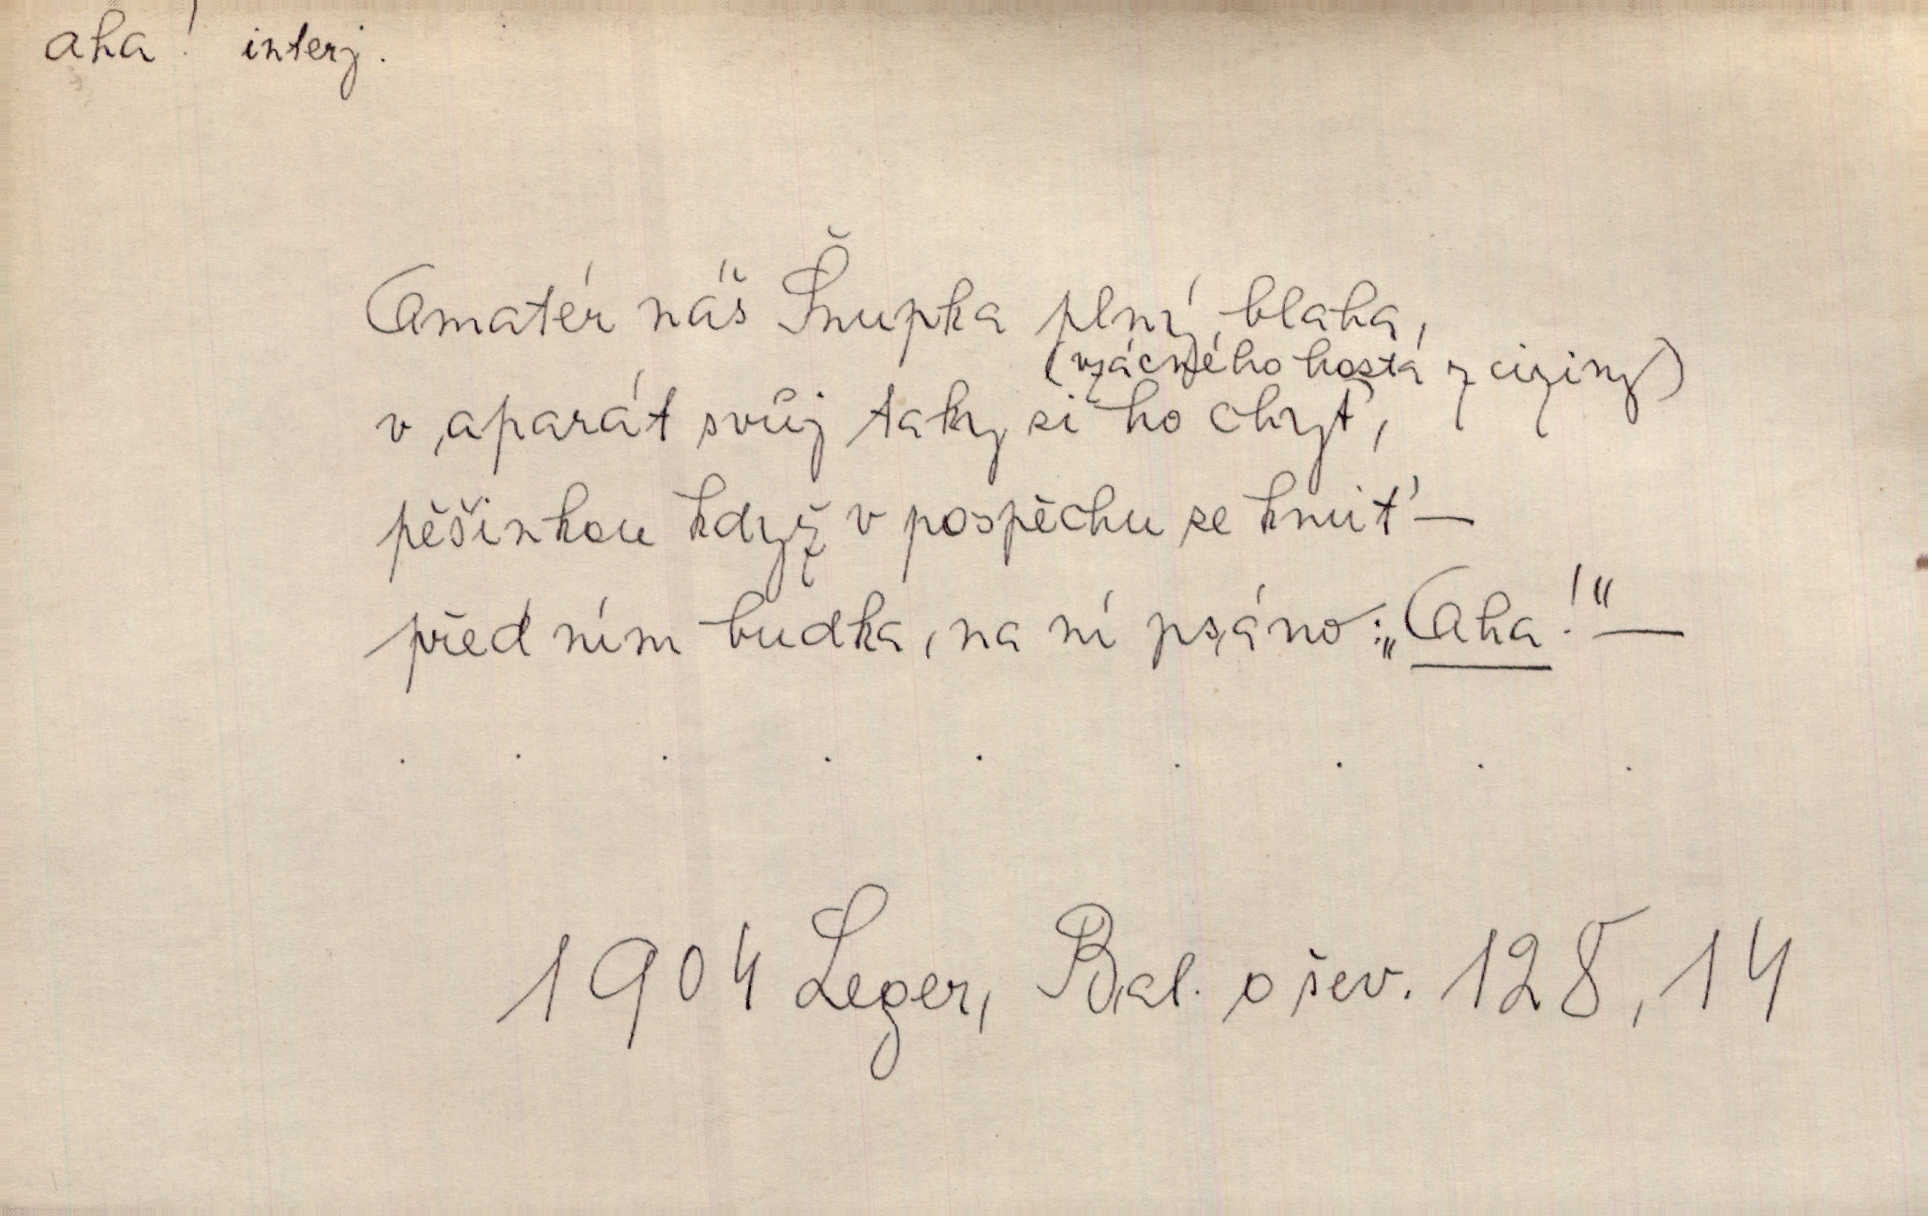 aha! interj.
Amatér náš Šnupka plný blaha,
(vzácného hosta z ciziny)
v aparát svůj taky si ho chyt',
pěšinkou když v pospěchu se kmit' —
před ním budka, na ní psáno: „Aha!" —
. . . . . . . . .
1904 Leger, Bal. o šev. 128, 14